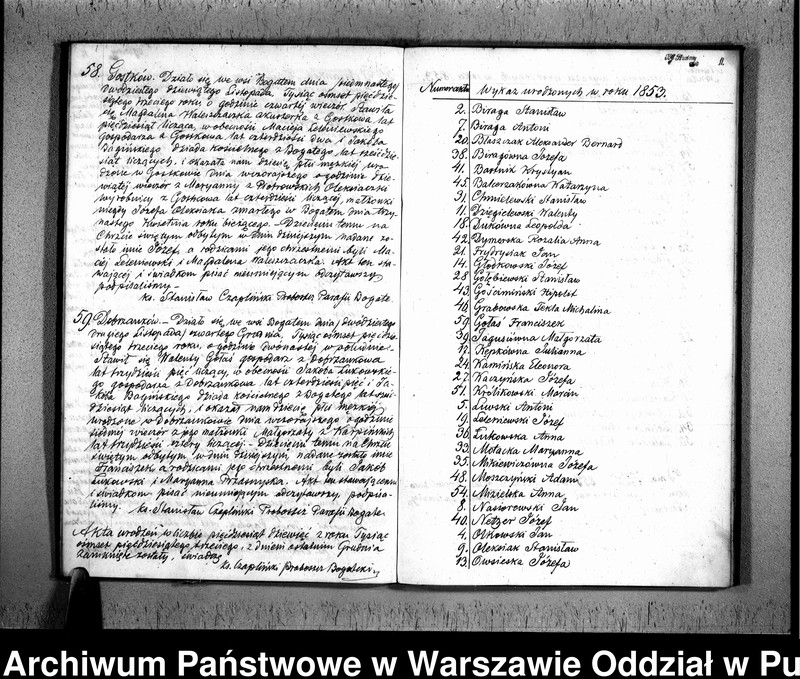 58. Gostków. Działo się we wsi Bogatem dnia siedmnastego
dwudziestego dziewiątego Listopada Tysiąc ośmset pięćdzie-
siątego trzeciego roku o godzinie czwartej wieczór. Stawiła
się Magdalena Waleszczacka akuszerka z Gostkowa lat
pięćdziesiąt licząca, w obecności Macieja
Gospodarza z Gostkowa, lat czterdzieści dwa i Jakóba
Bagińskiego dziada kościelnego z Bogatego, lat sześćdzie-
siąt liczących, i okazała nam dziecię płci męzkiej uro-
dzone w Gostkowie dnia wczorajszego o godzinie dzie-
wiątej wieczór z Maryanny z Piotrowskich Oleksiaczki
wyrobnicy z Gostkowa lat czterdzieści liczącej, małżonki
niegdy Józefa Oleksiaka zmarłego w Bogatem dnia trzy-
nastego Kwietnia roku bieżącego. – Dziecięciu temu na
Chrzcie świętym odbytym w dniu dzisiejszym nadane zo-
stało imie Józef, a rodzicami jego chrzestnemi byli Ma-
ciej i Magdalena Waleszczacka. Akt ten sta-
wającej i świadkom pisać nieumiejącym odczytawszy
podpisaliśmy. –
ks. Stanisław Czapliński Proboszcz Parafii Bogate.
59. Dobrzankow. – Działo się we wsi Bogatem dnia dwódziestego
drugiego Listopada / czwartego Grudnia, Tysiąc ośmset pięćdzie-
siątego trzeciego roku, o godzinie dwónastej w południe. –
Stawił się Walenty Gołaś gospodarz z Dobrzankowa
lat trzydzieści pięć liczący, w obecności Jakóba Łukowskie-
go gospodarza z Dobrzankowa lat czterdzieści pięć i Ja-
kóba Bagińskiego dziada kościelnego z Bogatego lat sześć-
dziesiąt liczących, i okazał nam dziecię płci męzkiej
urodzone w Dobrzankowie dnia wczorajszego o godzinie
siódmej wieczór z jego małżonki Małgorzaty z Karpińskich
lat trzydzieści cztery liczącej – Dziecięciu temu na Chrzcie
świętym odbytym w dniu dzisiejszym, nadane zostało imie
Franciszek a rodzicami jego chrzestnemi byli Jakób
Łukowski i Maryanna. Akt ten stawającemu
i świadkom pisać nieumiejącym odczytawszy podpisa-
liśmy. ks. Stanisław Czapliński Proboszcz Parafii Bogate.
Akta urodzeń w liczbie pięćdziesiąt dziewięć z roku Tysiąc
ośmset pięćdziesiątego trzeciego, z dniem ostatnim Grudnia
zamknięte zostały, świadczę
ks. Czapliński Proboszcz Bogatski
11.
Numer aktu Wykaz urodzonych w roku 1853.
2. Biraga Stanisław
7. Biraga Antoni
20. Błaszczak Alexander Bernard
38. Biragówna Józefa
41. Bartnik Krystyan
45. Balcerzakówna Katarzyna
31. Chmielewski Stanisław
11. Dzięgielewski Walenty
18. Dukówna Leopolda
42. Dymerska Rozalia Anna
21. Frydrysiak Jan
14. Głodkowski Józef
28. Gołębiewski Stanisław
43. Gościmiński Hipolit
46. Grabowska Tekla Michalina
59. Gołaś Franciszek
39. Jagusiówna Małgorzata
17. Kępkówna Julianna
24. Kamińska Eleonora
27. Kaczyńska Józefa
51. Królikowski Marcin
5. Liwski Antoni
19. Józef
36. Łukowska Anna
33. Motacka Maryanna
35. Mikiewiczówna Józefa
48. Moszczyński Adam
54. Mizielska Anna
8. Nasiorowski Jan
40. Netzer Józef
4. Olkowski Jan
9. Oleksiak Stanisław
13. Owsieska Józefa
Archiwum Państwowe w Warszawie Oddział w Pu